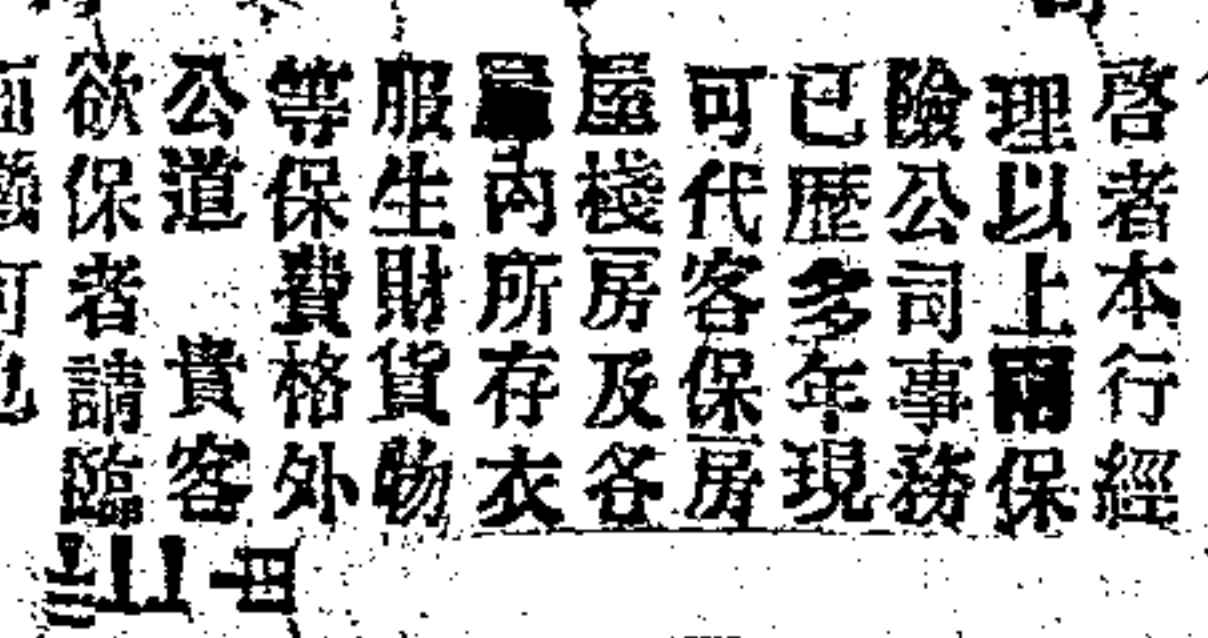 啓者本行經
理以上爾保
險公司事務
已歴多年現
可代客保房
屋棧房及各
內所存衣
服生財貨物
等保費格外
公道 貴客
欲保者請臨
面議可也